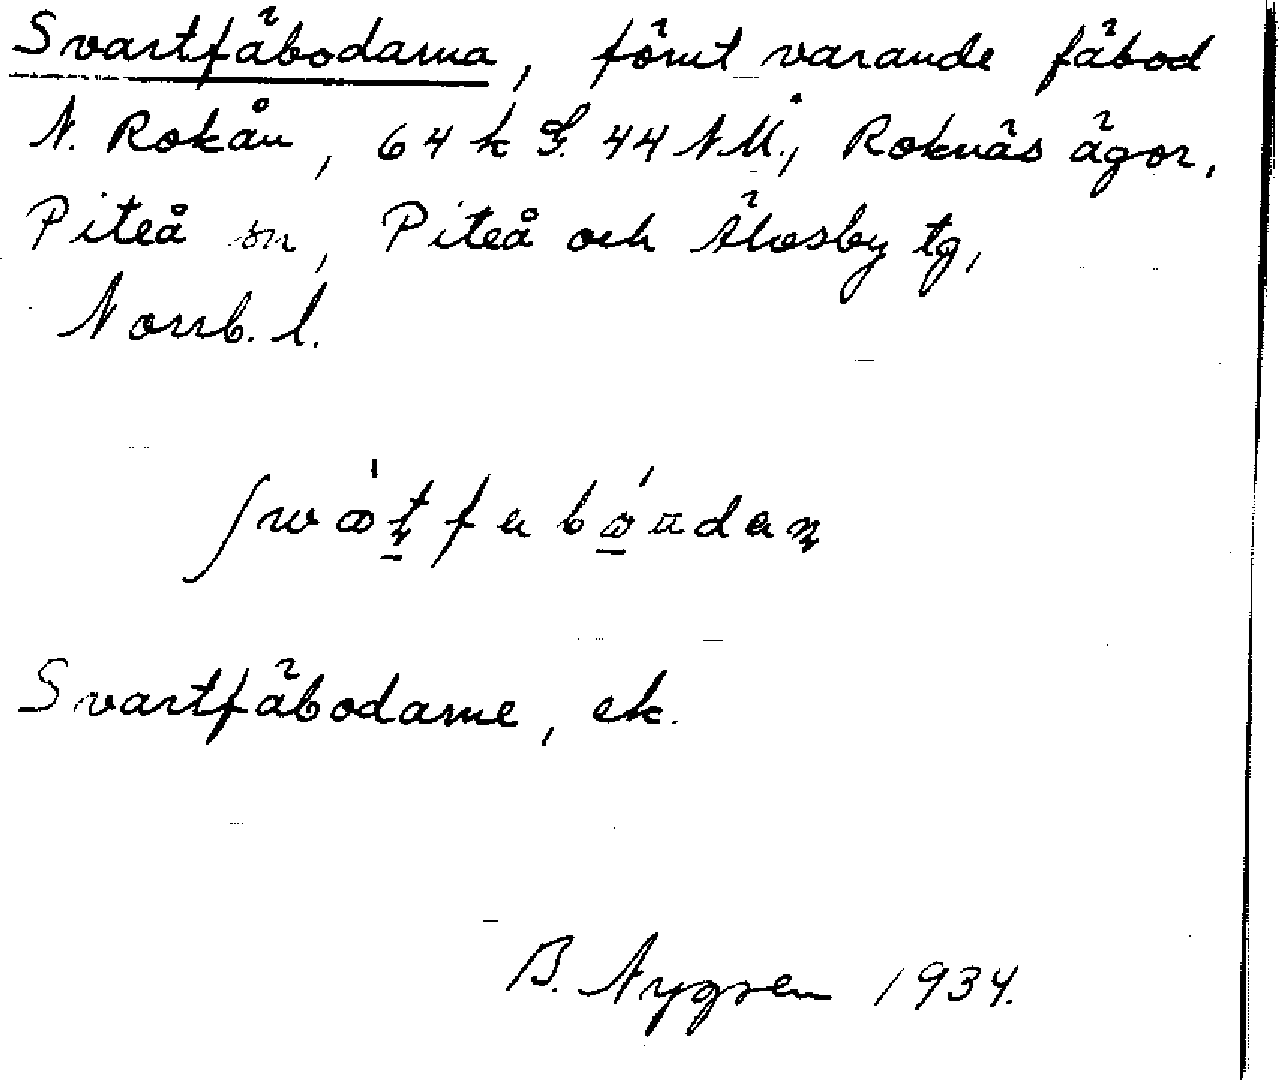 Svartfäbodarna, förut varande fäbod
N. Rokån, 64 k S. 44 NM., Roknäs ägor,
Piteå sn, Piteå och Älvsby tg,
Norrb. l.
Svartfäbodarne, ek.
B. Nygren 1934.